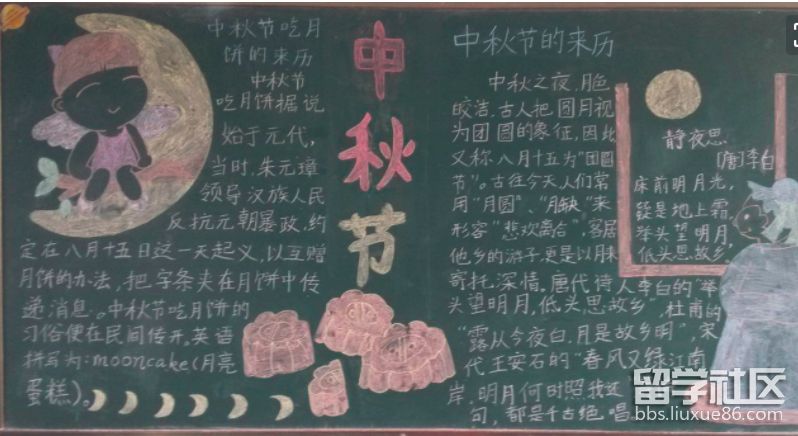 中秋节吃月
饼的来历
中秋节
吃月饼据说
始于元代,
当时,朱元璋
领导汉族人民
反抗元朝暴政,约
定在八月十五日这一天起义,以互赠
月饼的办法,把字条夹在月饼中传
递消息。中秋节吃月饼的
习俗便在民间传开。英语
拼写为:mooncake(月亮
蛋糕)。
中秋节
中秋节的来历
中秋之夜,月色
皎洁,古人把圆月视
为团圆的象征,因此
又称八月十五为“团圆
节”。古往今天人们常
用“月圆”、“月缺”来
形容“悲欢离合”,客居
他乡的游子,更是以月来
寄托深情。唐代诗人李白的“举
头望明月,低头思故乡”,杜甫的
“露从今夜白,月是故乡明”,宋
代王安石的“春风又绿江南
岸,明月何时照我还”
句,都是千古绝唱
静夜思
[唐]李白
床前明月光,
疑是地上霜,
举头望明月,
低头思故乡,
留学社区
bbs.liuxue86.com